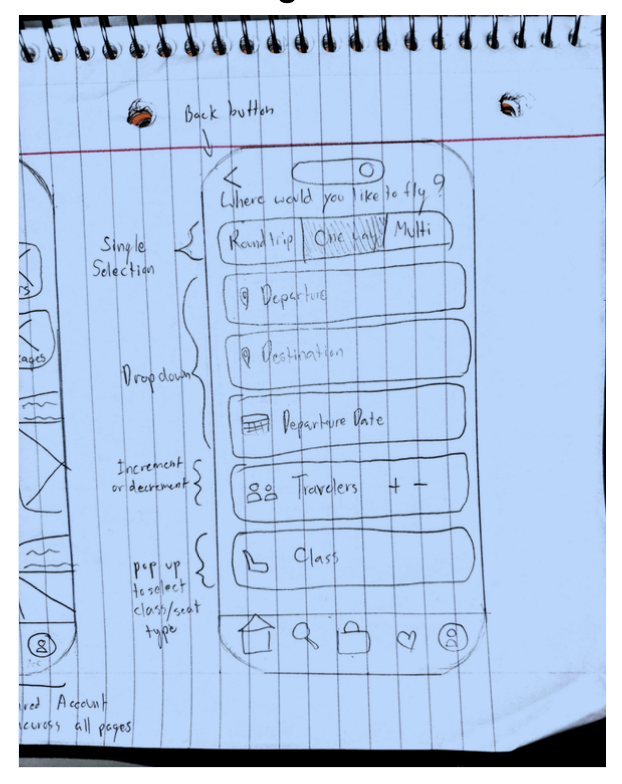 Back button
Where would you like to fly?
Single
Selection
Roundtrip One way Multi
Departure
Destination
Dropdown
Departure Date
Increment
or decrement
Travelers + -
pop up
to select
class/seat
type
Class
Account
across all pages